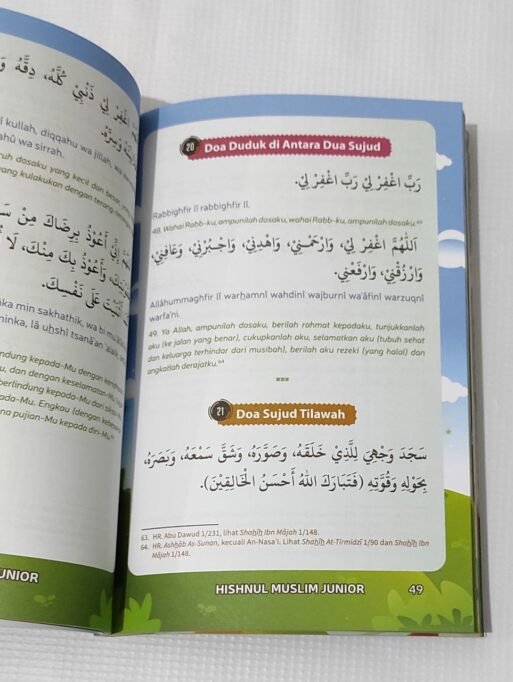 اغْفِرْ لِيْ ذَنْبِيْ كُلَّهُ، دِقَّهُ
وَسِرَّهُ.
kullah, diqqahu wa jillah, wa
wa sirrah.
dosaku yang kecil dan besar, yang
kulakukan dengan terang-
إِنِّيْ أَعُوْذُ بِرِضَاكَ مِنْ
وَأَعُوْذُ بِكَ مِنْكَ، لَا
أَثْنَيْتَ عَلَى نَفْسِكَ.
min sakhathik, wa bi
lā uḫshī tsanā'an 'alaik,
kepada-Mu dengan
dan dengan keselamatan-Mu
berlindung kepada-Mu dari
-Mu. Engkau (dengan
pujian-Mu kepada diri-Mu.
JUNIOR
20 Doa Duduk di Antara Dua Sujud
رَبِّ اغْفِرْ لِيْ رَبِّ اغْفِرْ لِيْ.
Rabbighfir lī rabbighfir lī.
48. Wahai Rabb-ku, ampunilah dosaku, wahai Rabb-ku, ampunilah dosaku.⁶³
اَللّٰهُمَّ اغْفِرْ لِيْ، وَارْحَمْنِيْ، وَاهْدِنِيْ، وَاجْبُرْنِيْ، وَعَافِنِيْ،
وَارْزُقْنِيْ، وَارْفَعْنِيْ.
Allāhummaghfir lī warḫamnī wahdinī wajburnī wa'āfinī warzuqnī
warfa'nī.
49. Ya Allah, ampunilah dosaku, berilah rahmat kepadaku, tunjukkanlah
aku (ke jalan yang benar), cukupkanlah aku, selamatkan aku (tubuh sehat
dan keluarga terhindar dari musibah), berilah aku rezeki (yang halal) dan
angkatlah derajatku.⁶⁴
***
21 Doa Sujud Tilawah
سَجَدَ وَجْهِيَ لِلَّذِيْ خَلَقَهُ، وَصَوَّرَهُ، وَشَقَّ سَمْعَهُ، وَبَصَرَهُ،
بِحَوْلِهِ وَقُوَّتِهِ (فَتَبَارَكَ اللهُ أَحْسَنُ الْخَالِقِيْنَ).
63. HR. Abu Dawud 1/231, lihat Shaḫīḫ Ibn Mājah 1/148.
64. HR. Ashḫāb As-Sunan, kecuali An-Nasa'i. Lihat Shaḫīḫ At-Tirmidzī 1/90 dan Shaḫīḫ Ibn
Mājah 1/148.
HISHNUL MUSLIM JUNIOR 49